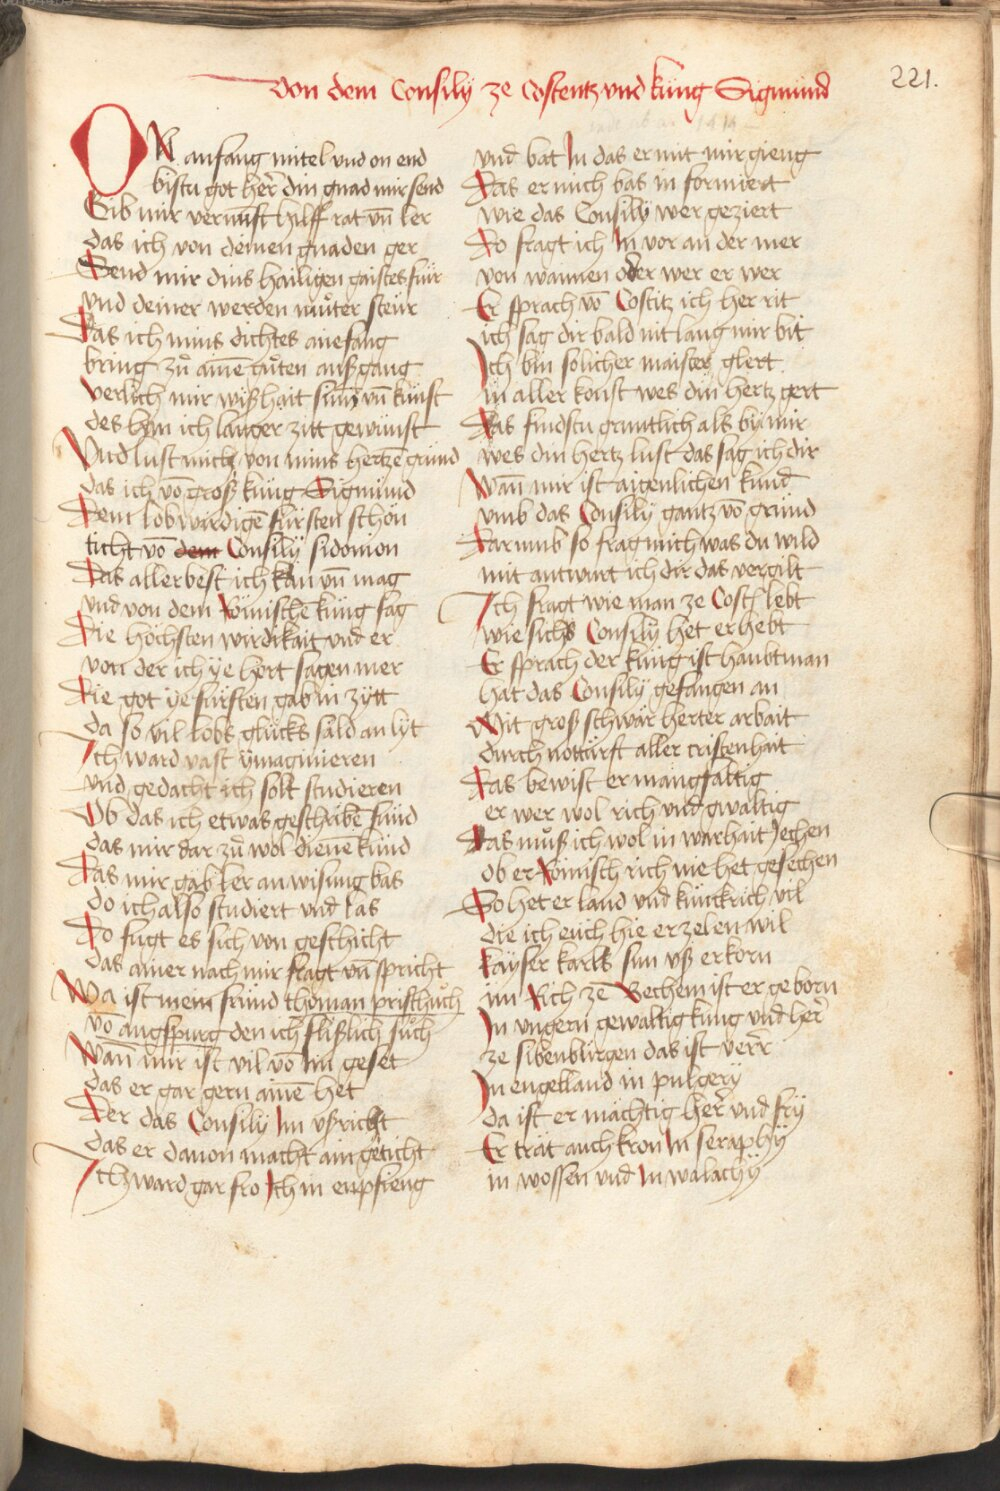 Von dem Consily ze Costentz und küng Sigmund
221.
ON anfang mitel und on end
bistu got her din gnad mir send
Gib mir vernunft hilff rat un ler
das ich von deinen gnaden ger
Send mir dins hailigen gaistes fuir
und deiner werden muter steur
Das ich mins dichtes anefang
bring zu aime guten aussgang
verlich mir wißhait sinn un kunst
des hon ich langer zitt gewunst
Und lust mich von mins hertze grund
das ich vo groß küng Sigmund
Dem lobwirdige fürsten schon
ticht vo dem Consily sidonion
Das allerbest ich kan un mag
und von dem Römische küng sag
Die höchsten wirdikait und er
von der ich ye hort sagen mer
Die got ye fürsten gab in zytt
da so vil lobs glücks säld an lyt
Ich ward vast ymaginieren
und gedacht ich solt studieren
Ob das ich etwas geschribe fund
das mir dar zu wol diene kund
Das mir gäb ler an wisung bas
do ich also studiert und las
Do fugt es sich von geschicht
das ainer nach mir fragt un spricht
Wa ist mein fründ thoman prischuch
vo augspurg den ich flißlich such
Wann mir ist vil vo im geset
das er gar gern aine het
Der das Consily Im ußricht
das er davon macht ain geticht
Ich ward gar fro Ich in enpfieng
und bat In das er mit mir gieng
Das er mich bas in formiert
wie das Consily wer geziert
Do fragt ich In vor an der mer
von wannen oder wer er wer
Er sprach vo Costitz ich her rit
ich sag dir bald nit lang mir bit
Ich bin solicher maister glert
in aller konst wes din hertz gert
Das findstu gruntlich als by mir
wes din hertz lust das sag ich dir
Wan mir ist aigenlichen kund
umb das Consily gantz vo grund
Darumb so frag mich was du wild
mit antwurt ich dir das vergilt
Ich fragt wie man ze Cost lebt
wie sichs Consily het erhebt
Er sprach der küng ist haubtman
hat das Consily gefangen an
Mit groß schwär herter arbait
durch notturft aller cristenhait
Das bewist er mangfaltig
er wer wol rich und gwaltig
Das muß ich wol in warhait Jechen
ob er Römisch rich nie het gesechen
So het er land und künckrich vil
die ich euch hie erzelen wil
kayser karls sun uß erkorn
im Rich ze Bechem ist er geborn
In ungern gewaltig kung und her
ze sibenbürgen das ist verr
In engelland in pulgery
da ist er mächtig her und fry
Er trat auch kron In seraphy
in wossen und In walachy